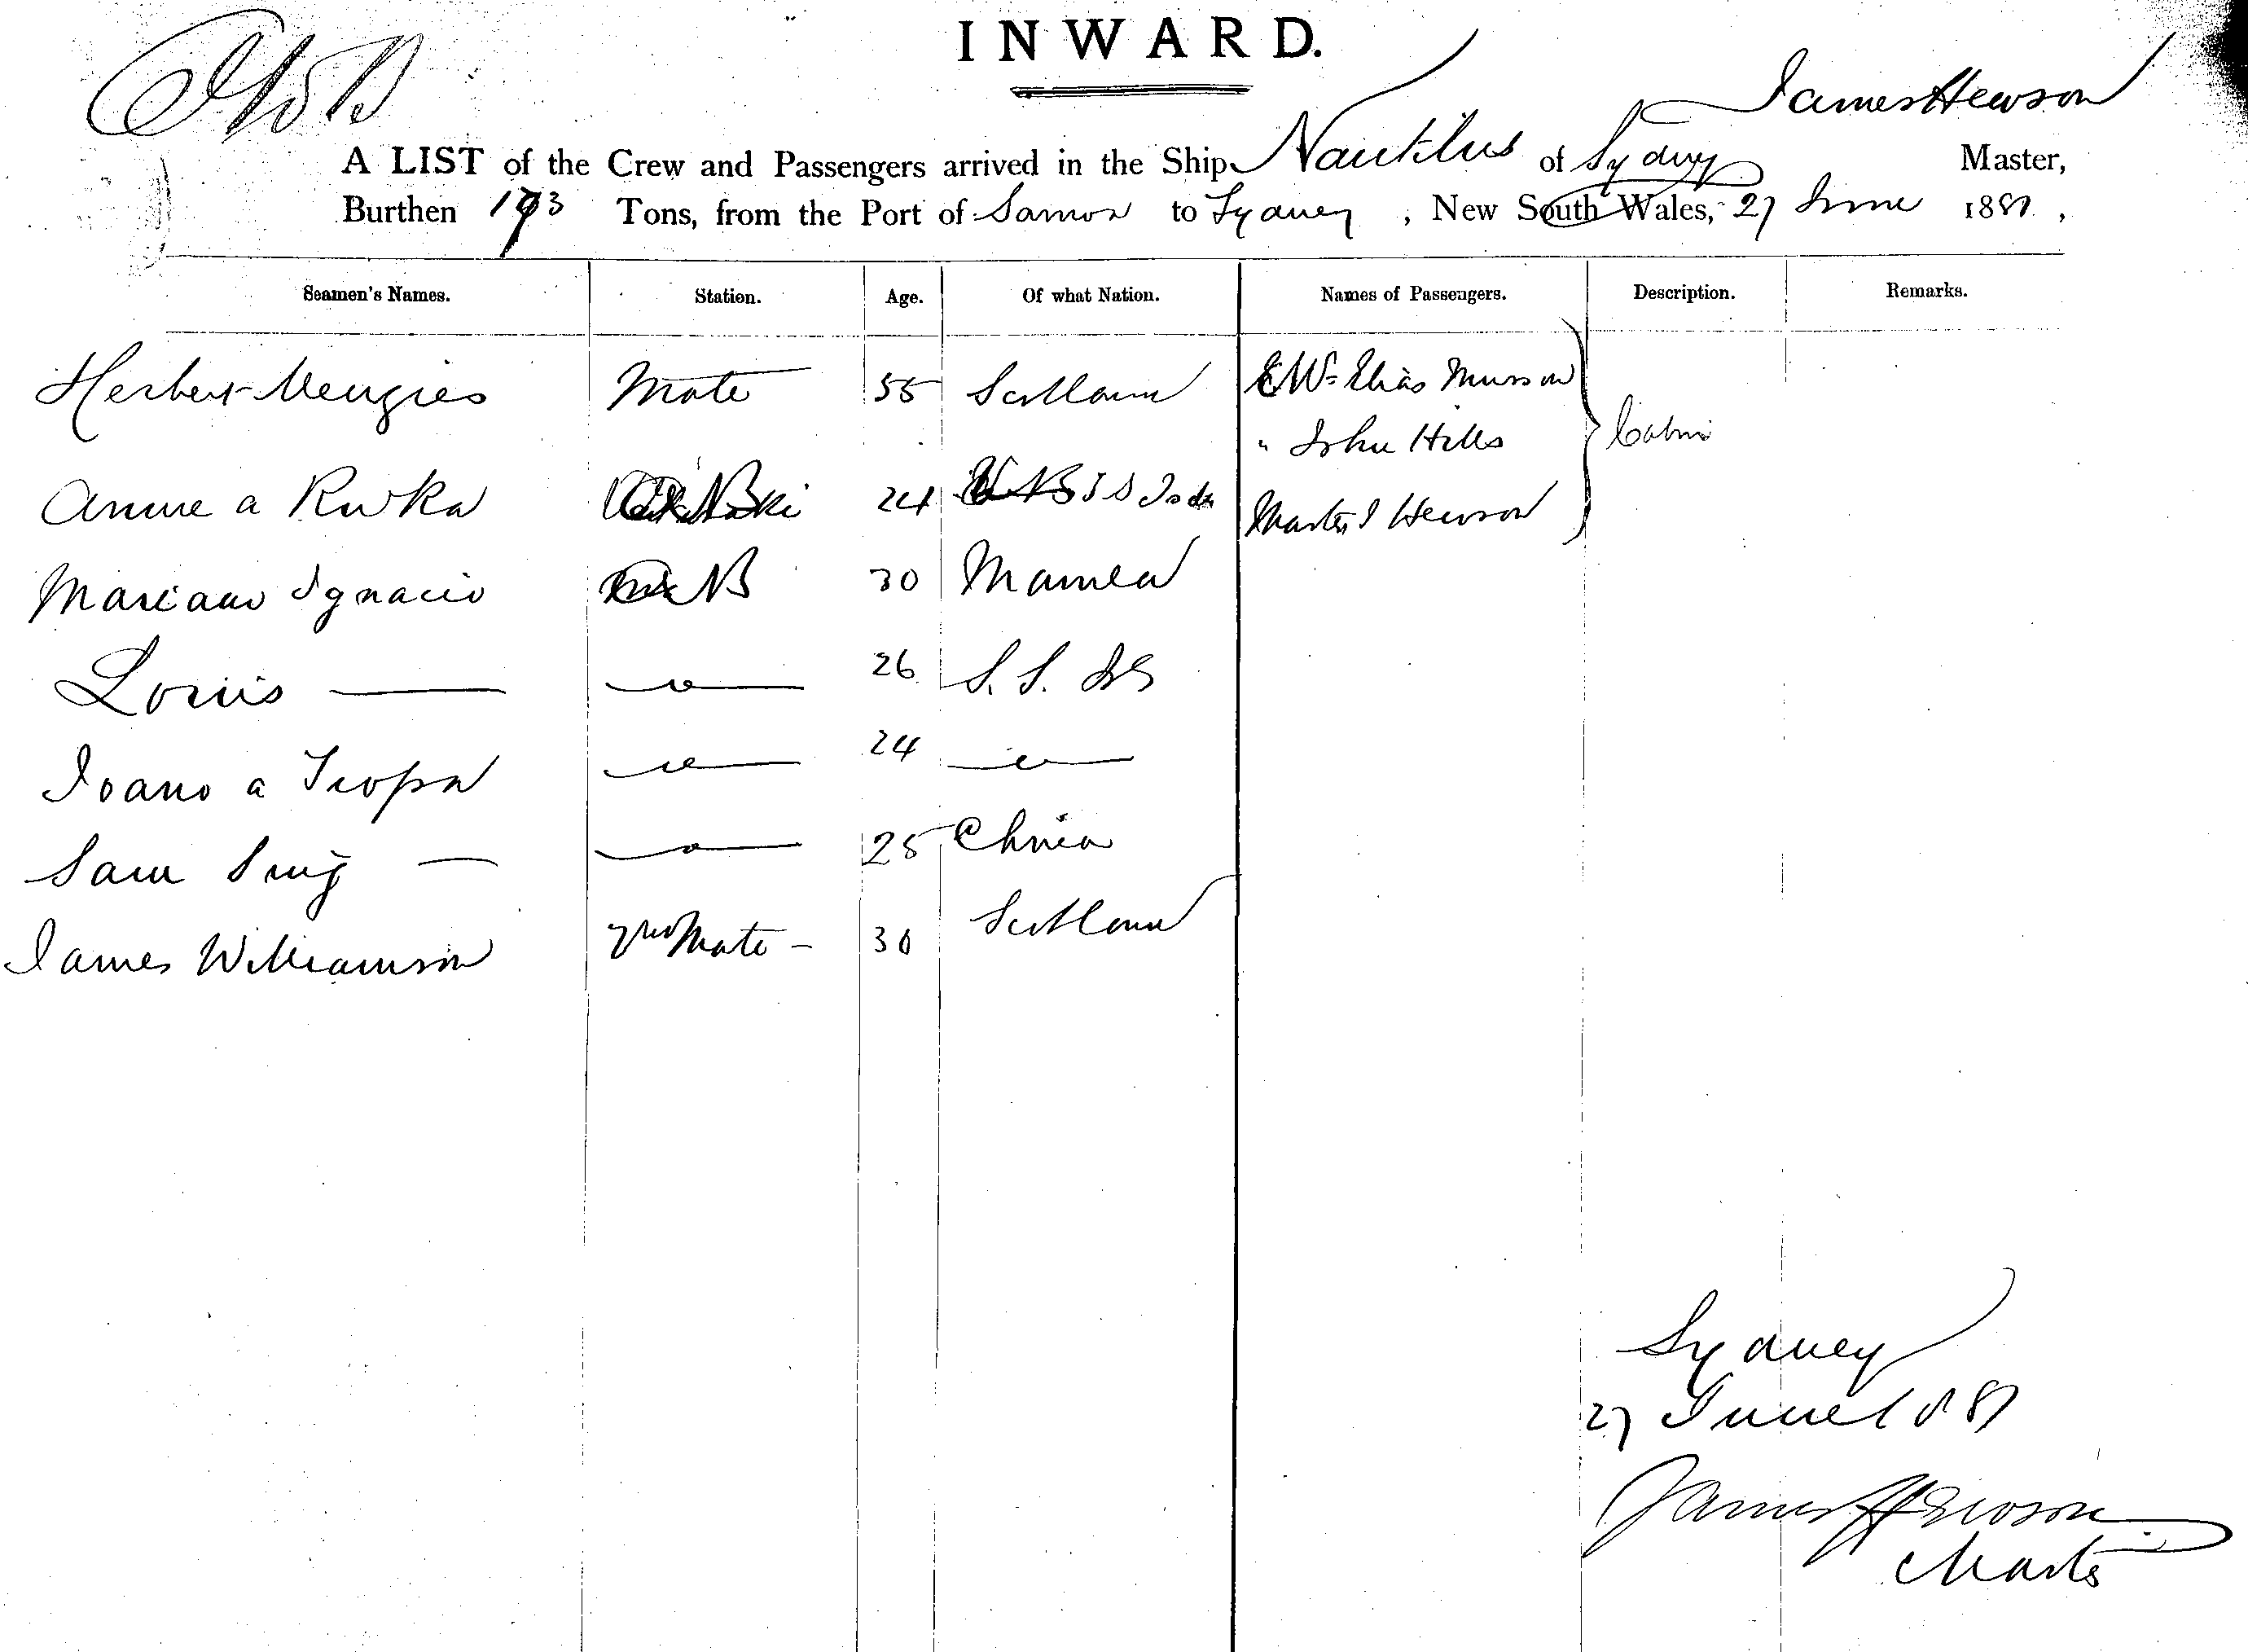 INWARD.
James Hewson
A LIST of the Crew and Passengers arrived in the Ship Nautilus of Sydney Master,
Burthen 193 Tons, from the Port of Samoa to Sydney, New South Wales, 27 June 1881,
Seamen's Names. Station. Age. Of what Nation. Names of Passengers. Description. Remarks.
Herbert Menzies Mate 55 Scotland Elias Musson
" John Hills Cabin
a 24 S S
Master J Hewson
Mariano Ignacio AB 30 Manila
Louis — " — 26 S. S. Is
Ioano a — " — 24 — " —
Sam Sing — — " — 25 China
James Williamson 2nd Mate - 30 Scotland
Sydney
27 June 1881
James Hewson
Master